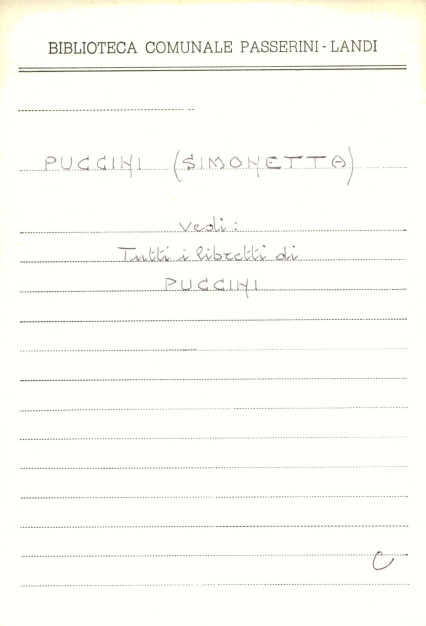 BIBLIOTECA COMUNALE PASSERINI-LANDI
PUCCINI (SIMONETTA)
Vedi:
Tutti i libretti di
PUCCINI
C